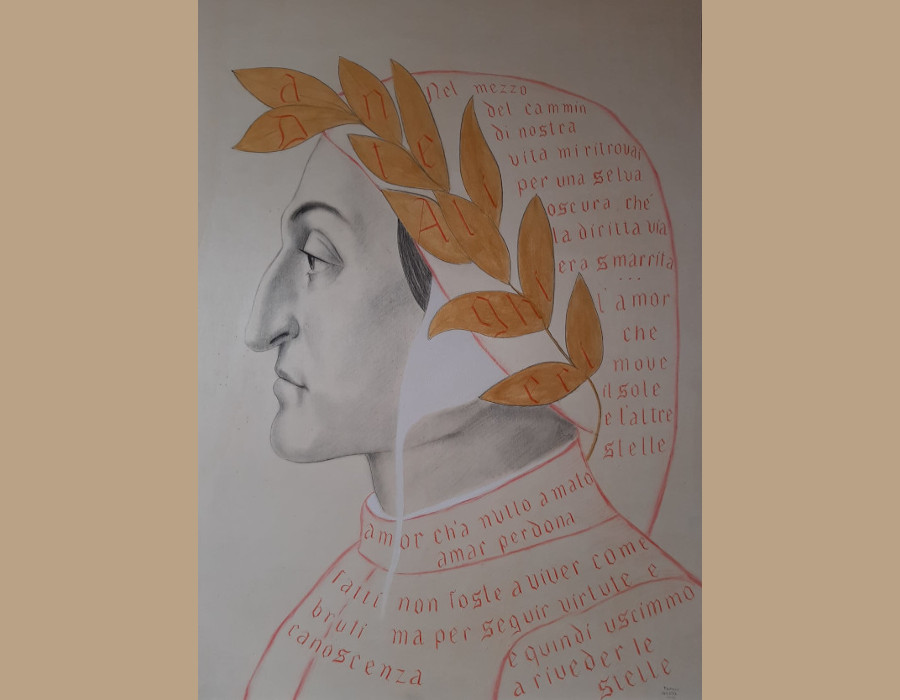 Dante
Alighieri
Nel mezzo
del cammin
di nostra
vita mi ritrovai
per una selva
oscura ché
la diritta via
era smarrita
...
l'amor
che
move
il sole
e l'altre
stelle
amor ch'a nullo amato
amar perdona
fatti non foste a viver come
bruti ma per seguir virtute e
canoscenza
e quindi uscimmo
a riveder le
stelle